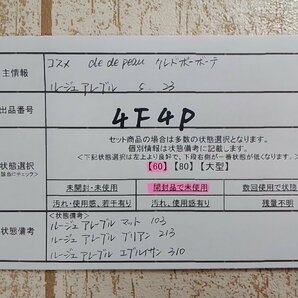 主情報
コスメ cle de peau クレドポーボーテ
ルージュアレーブル 5. 23
出品番号
4F4P
セット商品の場合は多数の状態選択となります。
個別情報は状態備考に記載します。
<下記状態選択は左上より良好で、下段右側が一番状態が低くなります。>
【60】 【80】 【大型】
状態選択
該当にチェック)
未開封・未使用 開封品で未使用 数回使用で状態
汚れ・使用感、若干有り 汚れ、使用感有り 残量不明
<状態備考>
状態備考
ルージュ アレーブル マット 103
ルージュ アレーブル ブリアン 213
ルージュ アレーブル 310